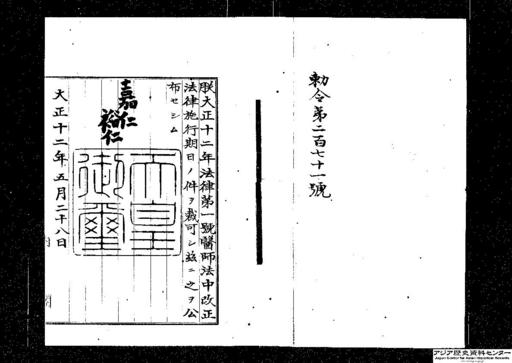 勅令第二百七十一號
朕大正十二年法律第一號醫師法中改正
法律施行期日ノ件ヲ裁可シ玆ニ之ヲ公
布セシム
嘉仁
裕仁
天皇
御璽
大正十二年五月二十八日
アジア歴史資料センター
Japan Center for Asian Historical Records